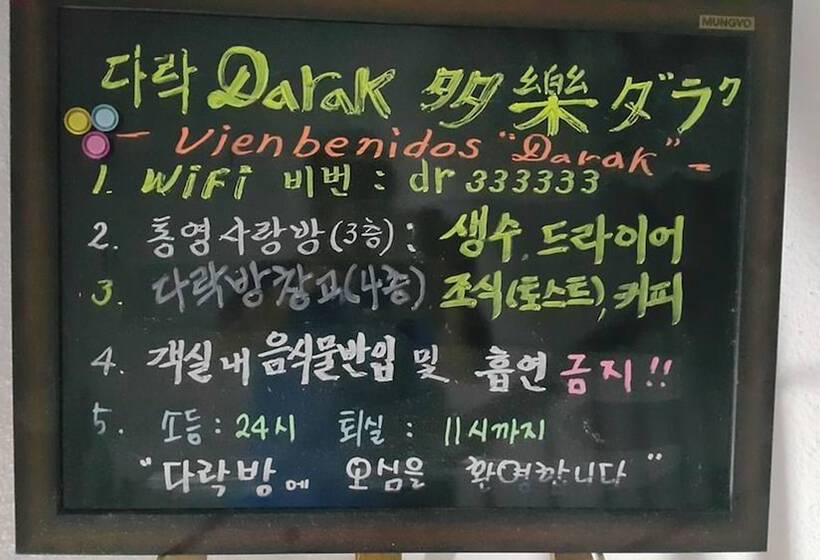 MUNGYO
다락 Darak 多樂 ダラク
- Vienbenidos "Darak" -
1. WiFi 비번 : dr 333333
2. 통영사랑방(3층) : 생수, 드라이어
3. 다락방창고(4층) 조식(토스트), 커피
4. 객실 내 음식물반입 및 흡연 금지!!
5. 소등 : 24시 퇴실 : 11시까지
"다락방에 오심을 환영합니다"